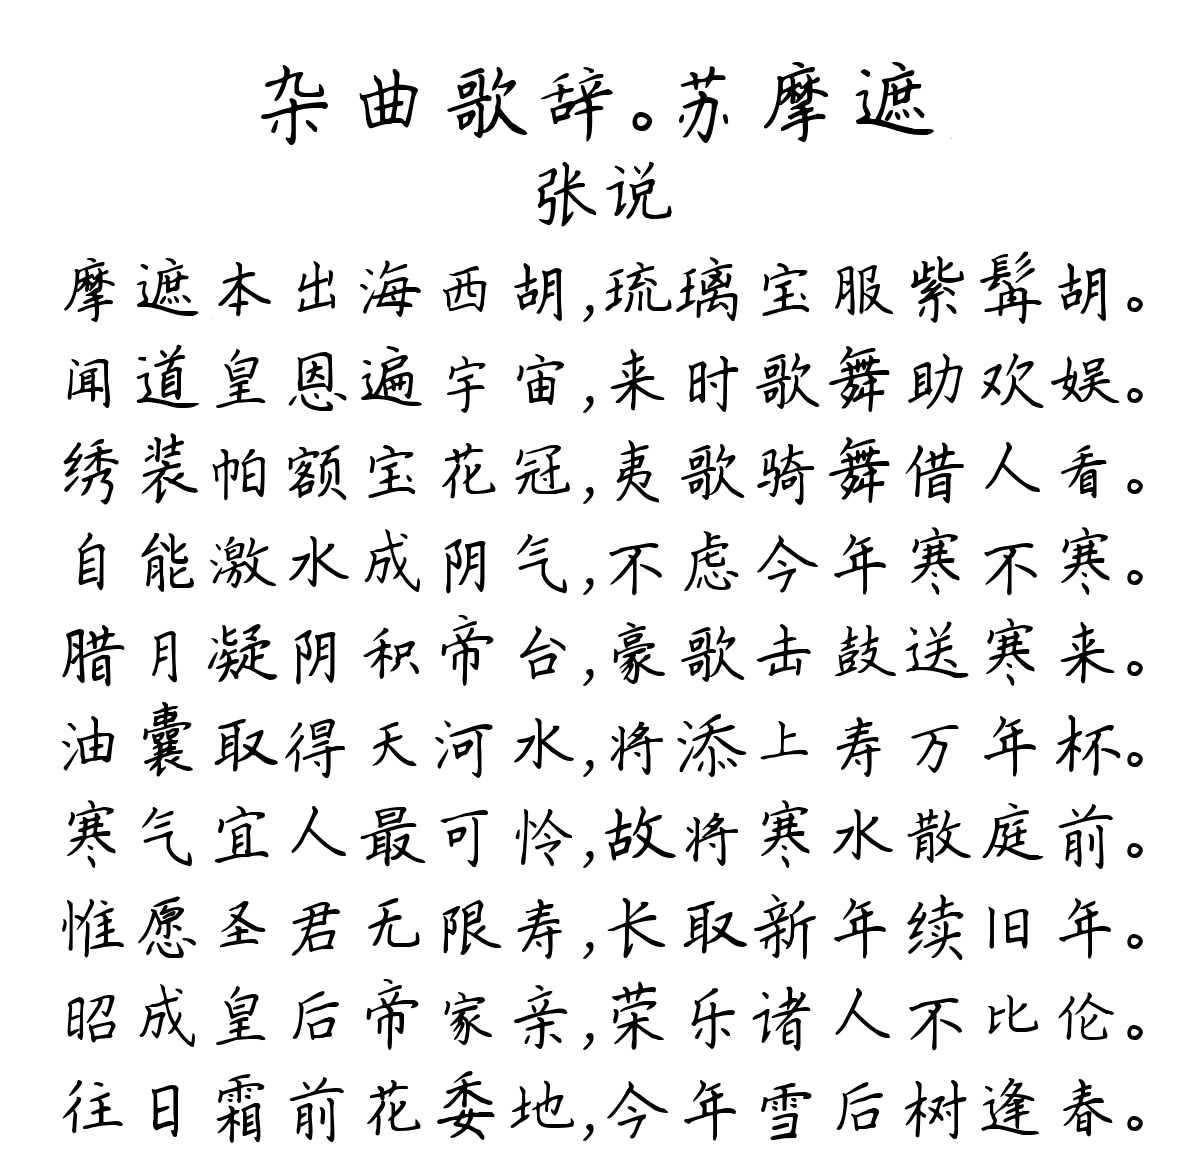 杂曲歌辞。苏摩遮
张说
摩遮本出海西胡,琉璃宝服紫髯胡。
闻道皇恩遍宇宙,来时歌舞助欢娱。
绣装帕额宝花冠,夷歌骑舞借人看。
自能激水成阴气,不虑今年寒不寒。
腊月凝阴积帝台,豪歌击鼓送寒来。
油囊取得天河水,将添上寿万年杯。
寒气宜人最可怜,故将寒水散庭前。
惟愿圣君无限寿,长取新年续旧年。
昭成皇后帝家亲,荣乐诸人不比伦。
往日霜前花委地,今年雪后树逢春。